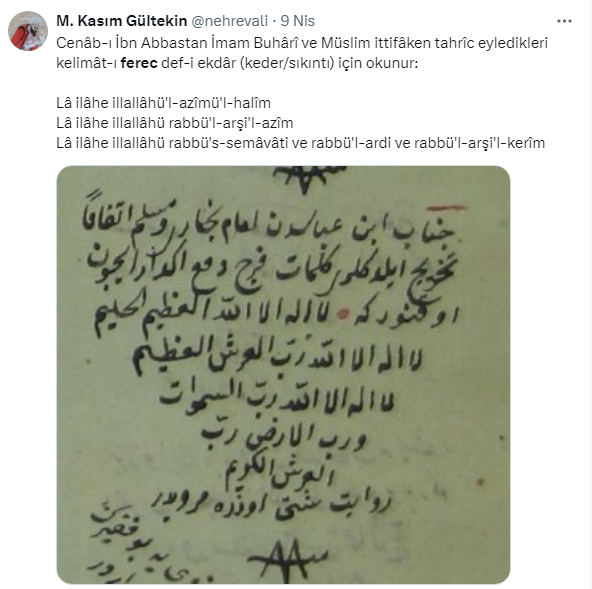 M. Kasım Gültekin @nehrevali · 9 Nis
Cenâb-ı İbn Abbastan İmam Buhârî ve Müslim ittifâken tahrîc eyledikleri
kelimât-ı ferec def-i ekdâr (keder/sıkıntı) için okunur:
Lâ ilâhe illallâhü'l-azîmü'l-halîm
Lâ ilâhe illallâhü rabbü'l-arşi'l-azîm
Lâ ilâhe illallâhü rabbü's-semâvâti ve rabbü'l-ardi ve rabbü'l-arşi'l-kerîm
جناب ابن عباسدن امام بخاری و مسلم اتفاقا
تخریج ایلدکلری کلمات فرج دفع اکدار ایچون
اوقنور که لا اله الا الله العظیم الحلیم
لا اله الا الله رب العرش العظیم
لا اله الا الله رب السموات
ورب الارض رب
العرش الکریم
روایت شتی اوزره مرویدر